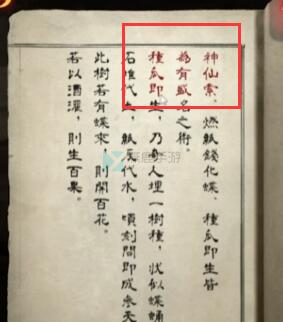 神仙索、燃紙錢化蝶、種瓜即生皆
為有盛名之術。
種瓜即生，乃奇人埋一樹種，狀似蝶蛹
石堆代土，紙灰代水，頃刻間即成參天
此樹若有蝶來，則開百花。
若以酒灌，則生百果。